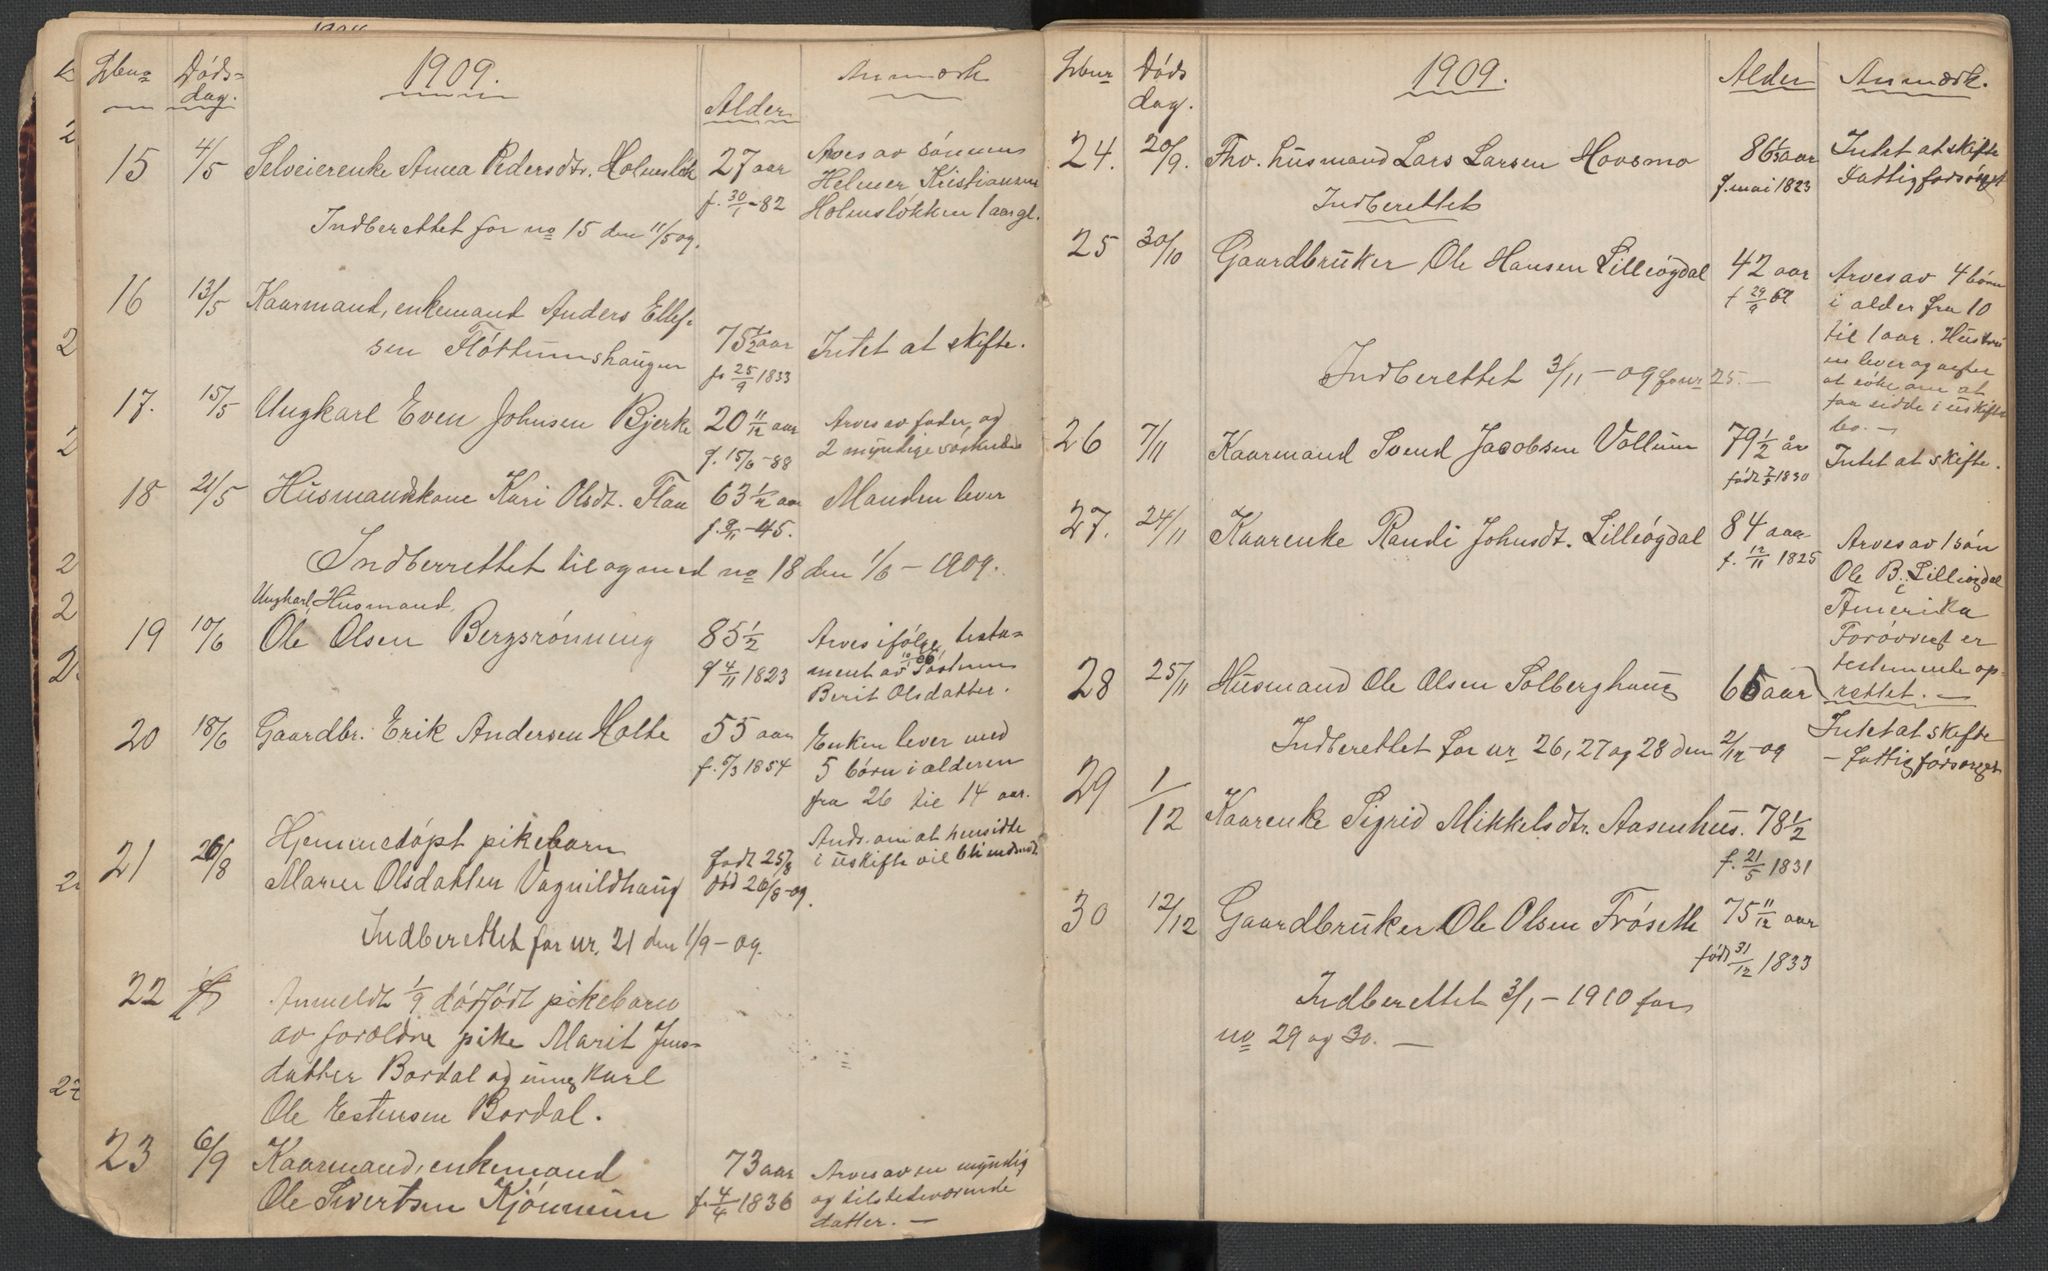 Lbno
Døds-
dag.
1909.
Alder
Anmærk
15 4/5 Selveierenke Anna Pedersdtr. Holmsløk 27 aar
f. 30/1-82
Arves av sønnen
Helmer Kristiansen
Holmsløkken 1 aar gl.
Indberettet for no 15 den 11/5 09.
16 13/5 Kaarmand, enkemand Anders Ellef-
sen Fløttumshaugen 75 1/2 aar
f. 25/9 1833
Intet at skifte.
17. 15/5 Ungkarl Even Johnsen Bjerke 20 11/12 aar
f. 15/6-88
Arves av fader og
2 myndige søskende
18 21/5 Husmandskone Kari Olsdt. Flaa 63 1/2 aar
f. 9/11-45.
Manden lever
Indberrettet til og med no 18 den 1/6-1909.
Ungkarl, Husmand,
19 10/6 Ole Olsen Bergsrønning 85 1/2
f 4/11 1823
Arves ifølge testa-
ment av 10/1 06 søsteren
Berit Olsdatter.
20 18/6 Gaardbr. Erik Andersen Holte 55 aar
f. 5/3 1854
Enken lever med
5 børn i alderen
fra 26 til 14 aar.
Ands. om at hensidte
i uskifte vil bli indsendt.
21 26/8 Hjemmedøpt pikebarn
Maren Olsdatter Vagnildhaug
født 25/8
død 26/8-09.
Indberettet for nr. 21 den 1/9-09.
22 Anmeldt 1/9 dødfødt pikebarn
av forældre pike Marit Jens-
datter Bordal og ungkarl
Ole Estensen Bordal.
23 6/9 Kaarmand, enkemand
Ole Sivertsen Kjønnum
73 aar
f. 4/4 1836
Arves av en myndig
og tilstedeværende
datter. —
Lbnr
Døds
dag.
1909.
Alder
Anmærk.
24. 20/9 Fhv. husmand Lars Larsen Hovsmo 86 1/3 aar
f. mai 1823
Intet at skifte
Fattigforsørget
Indberettet
25 30/10 Gaardbruker Ole Hansen Lilleøgdal 42 aar
f 29/9 67
Arves av 4 børn
i alder fra 10
til 1 aar. Hustru
en lever og agter
at søke om at
faa sidde i uskiftet
bo. —
Indberettet 3/11-09 for nr 25. —
26 7/11 Kaarmand Svend Jacobsen Vollum 79 1/2 år
født 7/5 1830
Intet at skifte.
27. 24/11 Kaarenke Randi Johnsdt. Lilleøgdal 84 aar
f. 12/11 1825
Arves av 1 søn
Ole B. Lilleøgdal
i
Amerika
Forøvrigt er
testemente op-
rettet. —
28 25/11 Husmand Ole Olsen Solberghaug 65 aar
Intet at skifte
— fattigforsørget
Indberettet for nr 26, 27 og 28 den 2/12-09
29 1/12 Kaarenke Sigrid Mikkelsdtr. Aasenhus. 78 1/2
f. 21/5 1831
30 12/12 Gaardbruker Ole Olsen Frøseth 75 11/12 aar
født 31/12 1833
Indberettet 3/1-1910 for
no 29 og 30. —